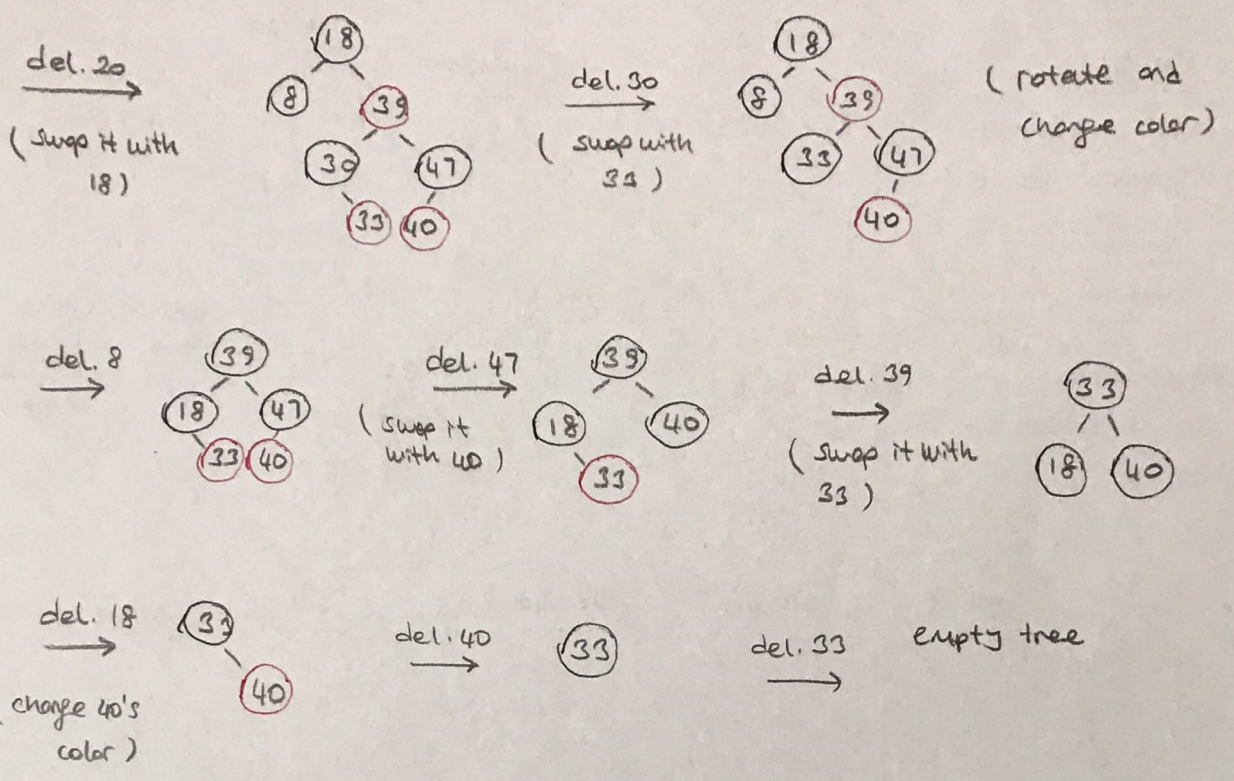 del. 20
( swap it with
18 )
18
8
39
30
47
33
40
del. 30
( swap with
33 )
18
8
39
33
47
40
( rotate and
change color )
del. 8
39
18
47
33
40
del. 47
( swap it
with 40 )
39
18
40
33
del. 39
( swap it with
33 )
33
18
40
del. 18
change 40's
color )
33
40
del. 40
33
del. 33
empty tree